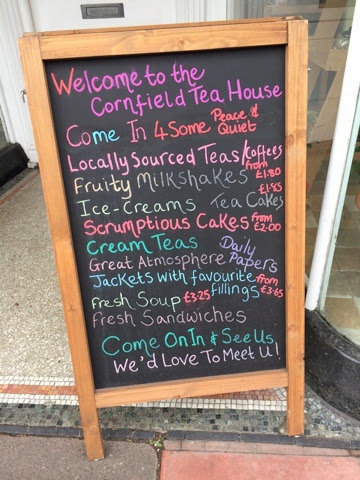 Welcome to the
Cornfield Tea House
Come In 4 Some Peace & Quiet
Locally Sourced Teas/Coffees
from £1.80
Fruity Milkshakes £1.85
Ice-Creams Tea Cakes
Scrumptious Cakes from £2.00
Cream Teas Daily Papers
Great Atmosphere
Jackets with favourite fillings from £3.65
fresh Soup £3.25
fresh Sandwiches
Come On In & See Us
We'd Love To Meet U!